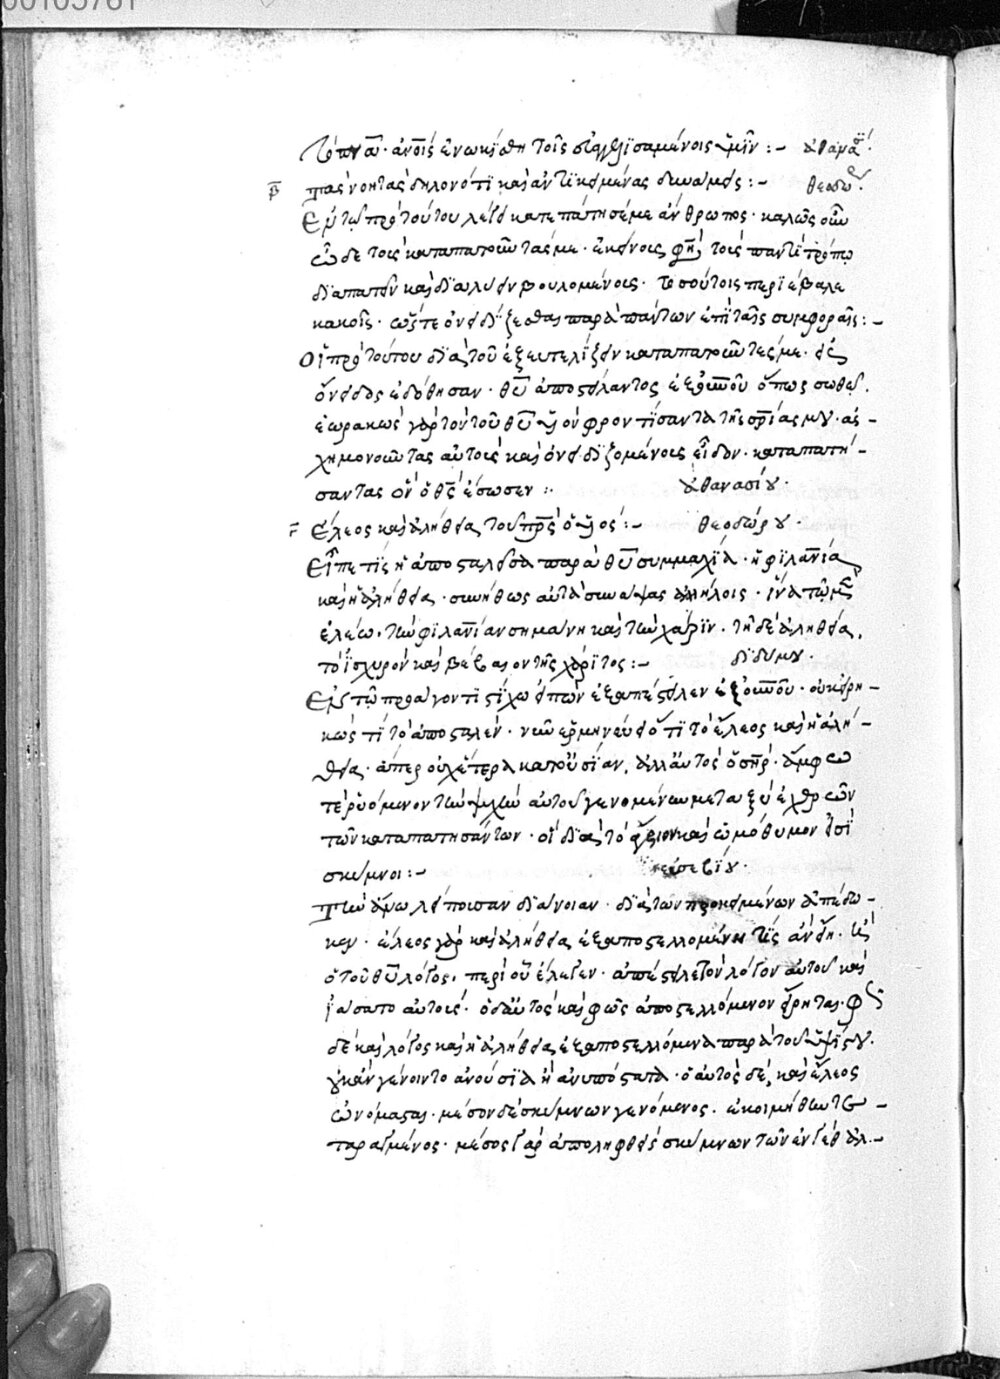 00105761
τὸ πνα · ἀνοῖς ἐνωκήσθη τοῖς εὐαγγελισαμένοις ἡμῖν :- ἀθανα
β πάσας νοητὰς δηλονότι καὶ ἀντικειμένας δυνάμεις :- θεοδω
Ἐν τῷ πρὸ τούτου λέγει κατεπάτησέ με ἄνθρωπος · καλῶς οὖν
ὧδε τοὺς καταπατοῦντάς με · ἐκείνοις φησὶ τοῖς παντὶ τρόπῳ
διαπατεῖν καὶ διαλύειν βουλομένοις · τοσούτοις περιέβαλε
κακοῖς · ὥστε ὀνειδίζεσθαι παρὰ πάντων ἐπὶ ταῖς συμφοραῖς :-
Οἱ πρὸ τούτου διὰ τοῦ ἐξευτελίζειν καταπατοῦντές με · εἰς
ὄνειδος ἐδόθησαν · θυ ἀποστείλαντος ἐξ οὐνοῦ ὅπως σωθῶ ·
ἑωρακὼς γὰρ τὸν τοῦ θυ υἱὸν φροντίσαντα τῆς σρίας μου · ἀσ-
χημονοῦντας αὐτοὺς καὶ ὀνειδιζομένους εἶδον · καταπατή-
σαντας οὓν ὁ θς ἔσωσεν :- ἀθανασίου ·
γ Ἔλεος καὶ ἀλήθεια τοῦ πρς ὁ υἱός :- θεοδώρου ·
Εἶπε τίς ἡ ἀποσταλεῖσα παρὰ θυ συμμαχία · ἡ φιλανία
καὶ ἡ ἀλήθεια · συνήθως αὐτὰ συνάψας ἀλλήλοις · ἵνα τῷ μὲν
ἐλέω · τὴν φιλανίαν σημαίνη καὶ τὴν χάριν · τῇ δὲ ἀληθεία ·
τὸ ἰσχυρὸν καὶ βέβαιον τῆς χάριτος :- διδύμου ·
Ἐν τῷ προάγοντι στίχω εἰπὼν ἐξαπέστειλεν ἐξ οὐνοῦ · οὐκ εἰρη-
κὼς τί τὸ ἀποσταλέν · νῦν ἑρμηνεύει ὅτι τὸ ἔλεος καὶ ἡ ἀλή-
θεια · ἅπερ οὐχ ἕτερα κατουσίαν · ἀλλ' αὐτὸς ὁ σηρ · ἄμφω
τε ῥυόμενον τὴν ψυχὴν αὐτοῦ γενομένην μεταξὺ ἐχθρῶν
τῶν καταπατησάντων · οἳ διὰ τὸ ἄγριον καὶ ὠμόθυμον εἰσὶ
σκύμνοι :- εὐσεβίου ·
Τὴν ἄνω λείπουσαν διάνοιαν · διὰ τῶν προκειμένων ἀπέδω-
κεν · ἔλεος γὰρ καὶ ἀλήθεια ἐξαποστελλομένη τίς ἂν εἴη · εἰ
ὁ τοῦ θυ λόγος · περὶ οὗ ἔλεγεν · ἀπέστειλε τὸν λόγον αὐτοῦ καὶ
ἰάσατο αὐτούς · ὁ δ' αὐτὸς καὶ φῶς ἀποστελλόμενον εἴρηται · φῶς
δὲ καὶ λόγος καὶ ἡ ἀλήθεια ἐξαποστελλόμενα παρὰ τοῦ ὑψίστου ·
οὐκ ἂν γένοιντο ἀνούσια ἢ ἀνυπόστατα · ὁ αὐτὸς δὲ καὶ ἔλεος
ὠνόμασται · μέσον δὲ σκύμνων γενόμενος · ἐκοιμήθην τε-
ταραγμένος · μέσος γὰρ ἀποληφθεὶς σκύμνων τῶν ἐν γεθαλ-